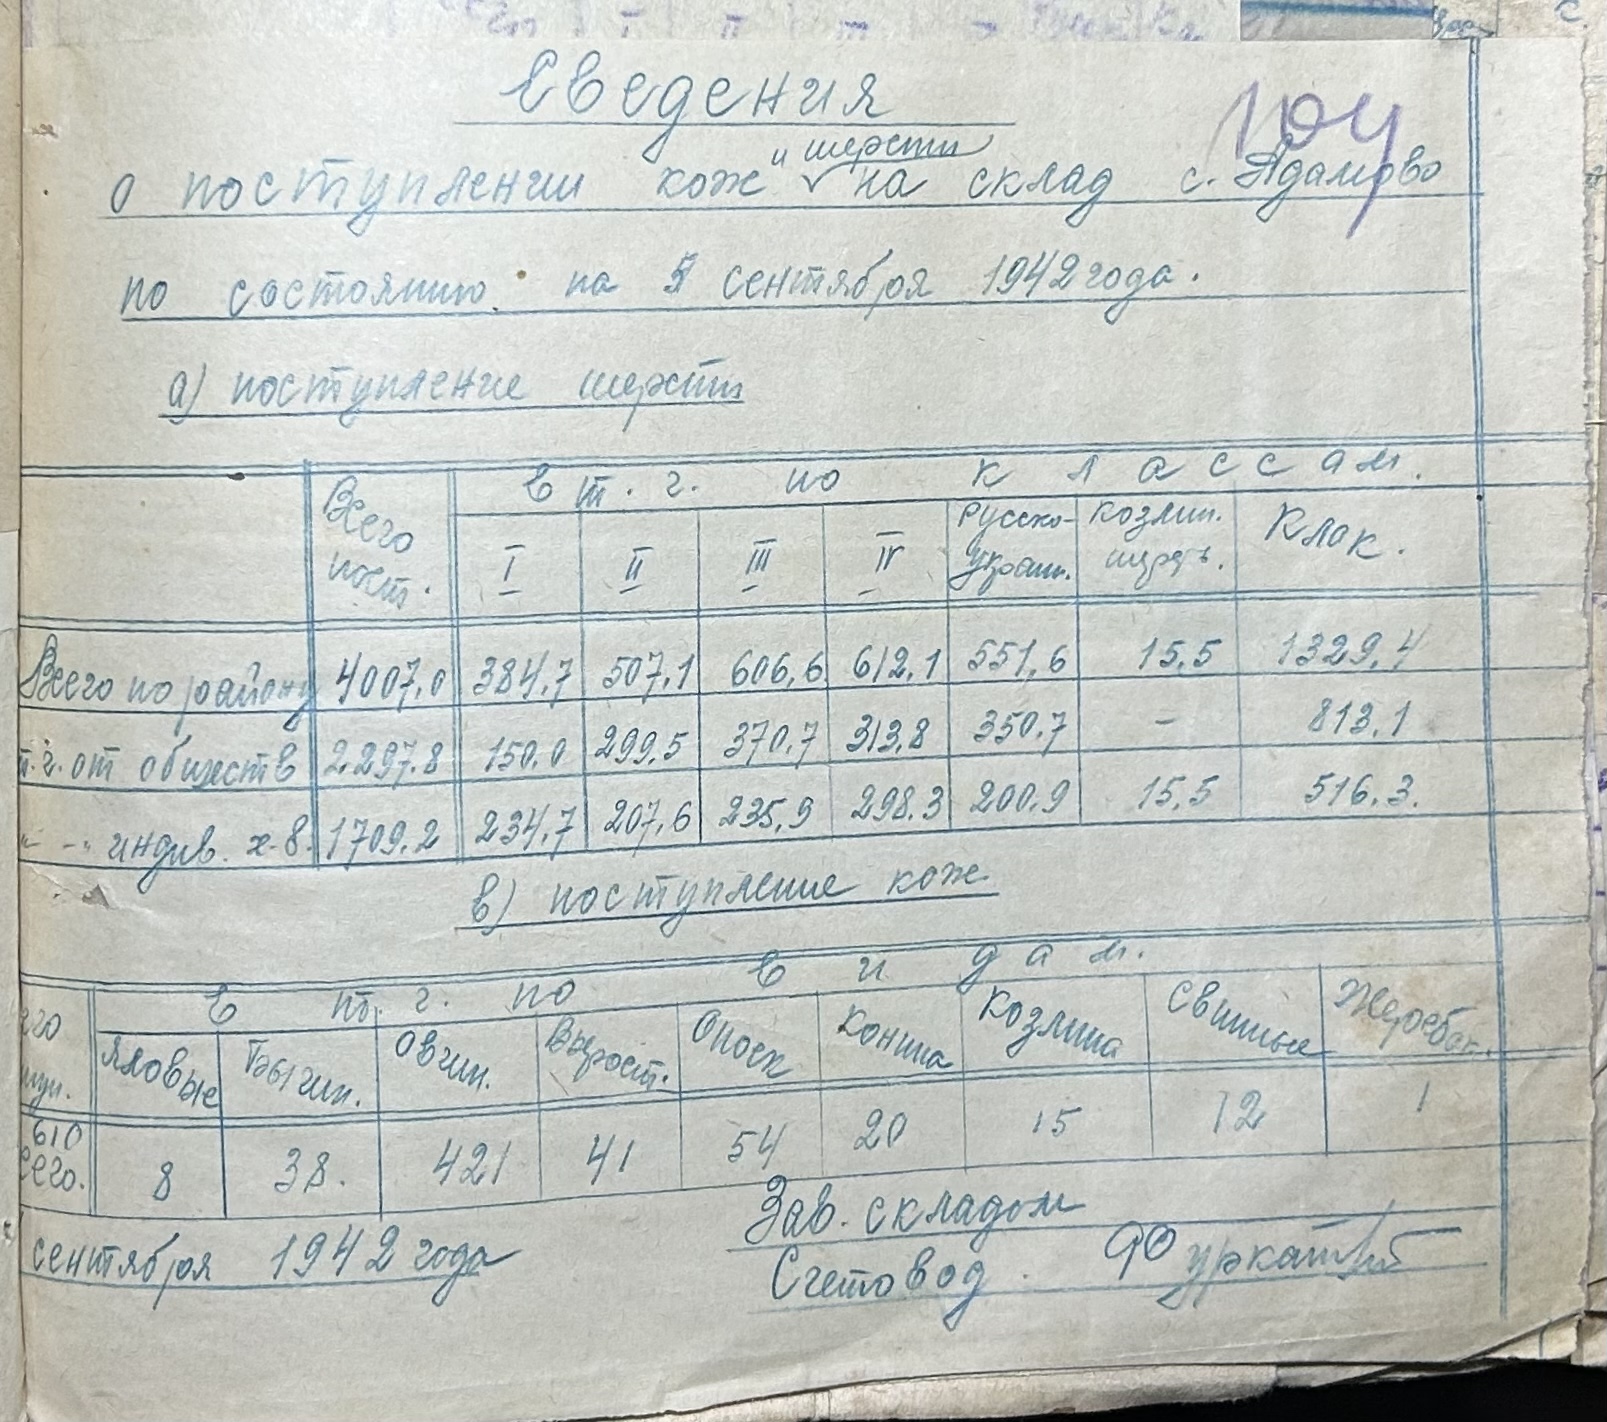 Сведения
104
и шерсти
о поступлении кож на склад с. Адамово
по состоянию на 5 сентября 1942 года.
а) поступление шерсти
Всего пост. В т. ч. по классам.
I II III IV Русско-украин. Козлин. шерсть. Клок.
Всего по району 4007,0 384,7 507,1 606,6 612,1 551,6 15,5 1329,4
т.ч. от обществ 2297,8 150,0 299,5 370,7 313,8 350,7 - 813,1
-"- индив. х-в. 1709,2 234,7 207,6 235,9 298,3 200,9 15,5 516,3.
в) поступление кож
В т. ч. по видам.
Яловые Бычин. Овчин. Вырост. Опоек Конина Козлина Свиные Жеребок.
610
сего. 8 38. 421 41 54 20 15 12 1
Зав. складом
сентября 1942 года
Счетовод